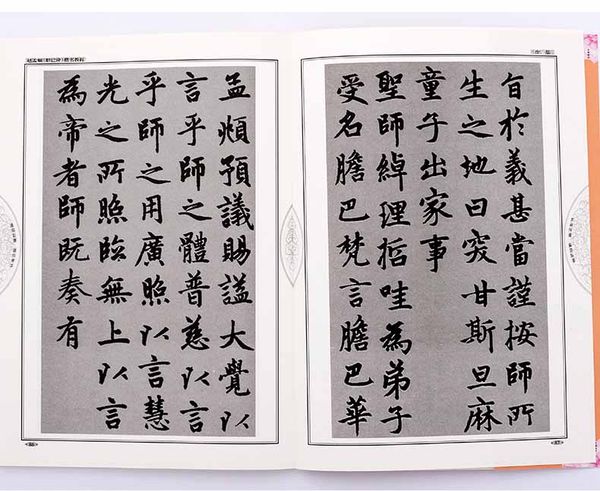 孟頫預議賜謚大覺以
言乎師之體普慈以言
乎師之用廣照以言慧
光之所照臨無上以言
為帝者師既奏有
旨於義甚當謹按師所
生之地曰突甘斯旦麻
童子出家事
聖師綽理哲哇為弟子
受名膽巴梵言膽巴華